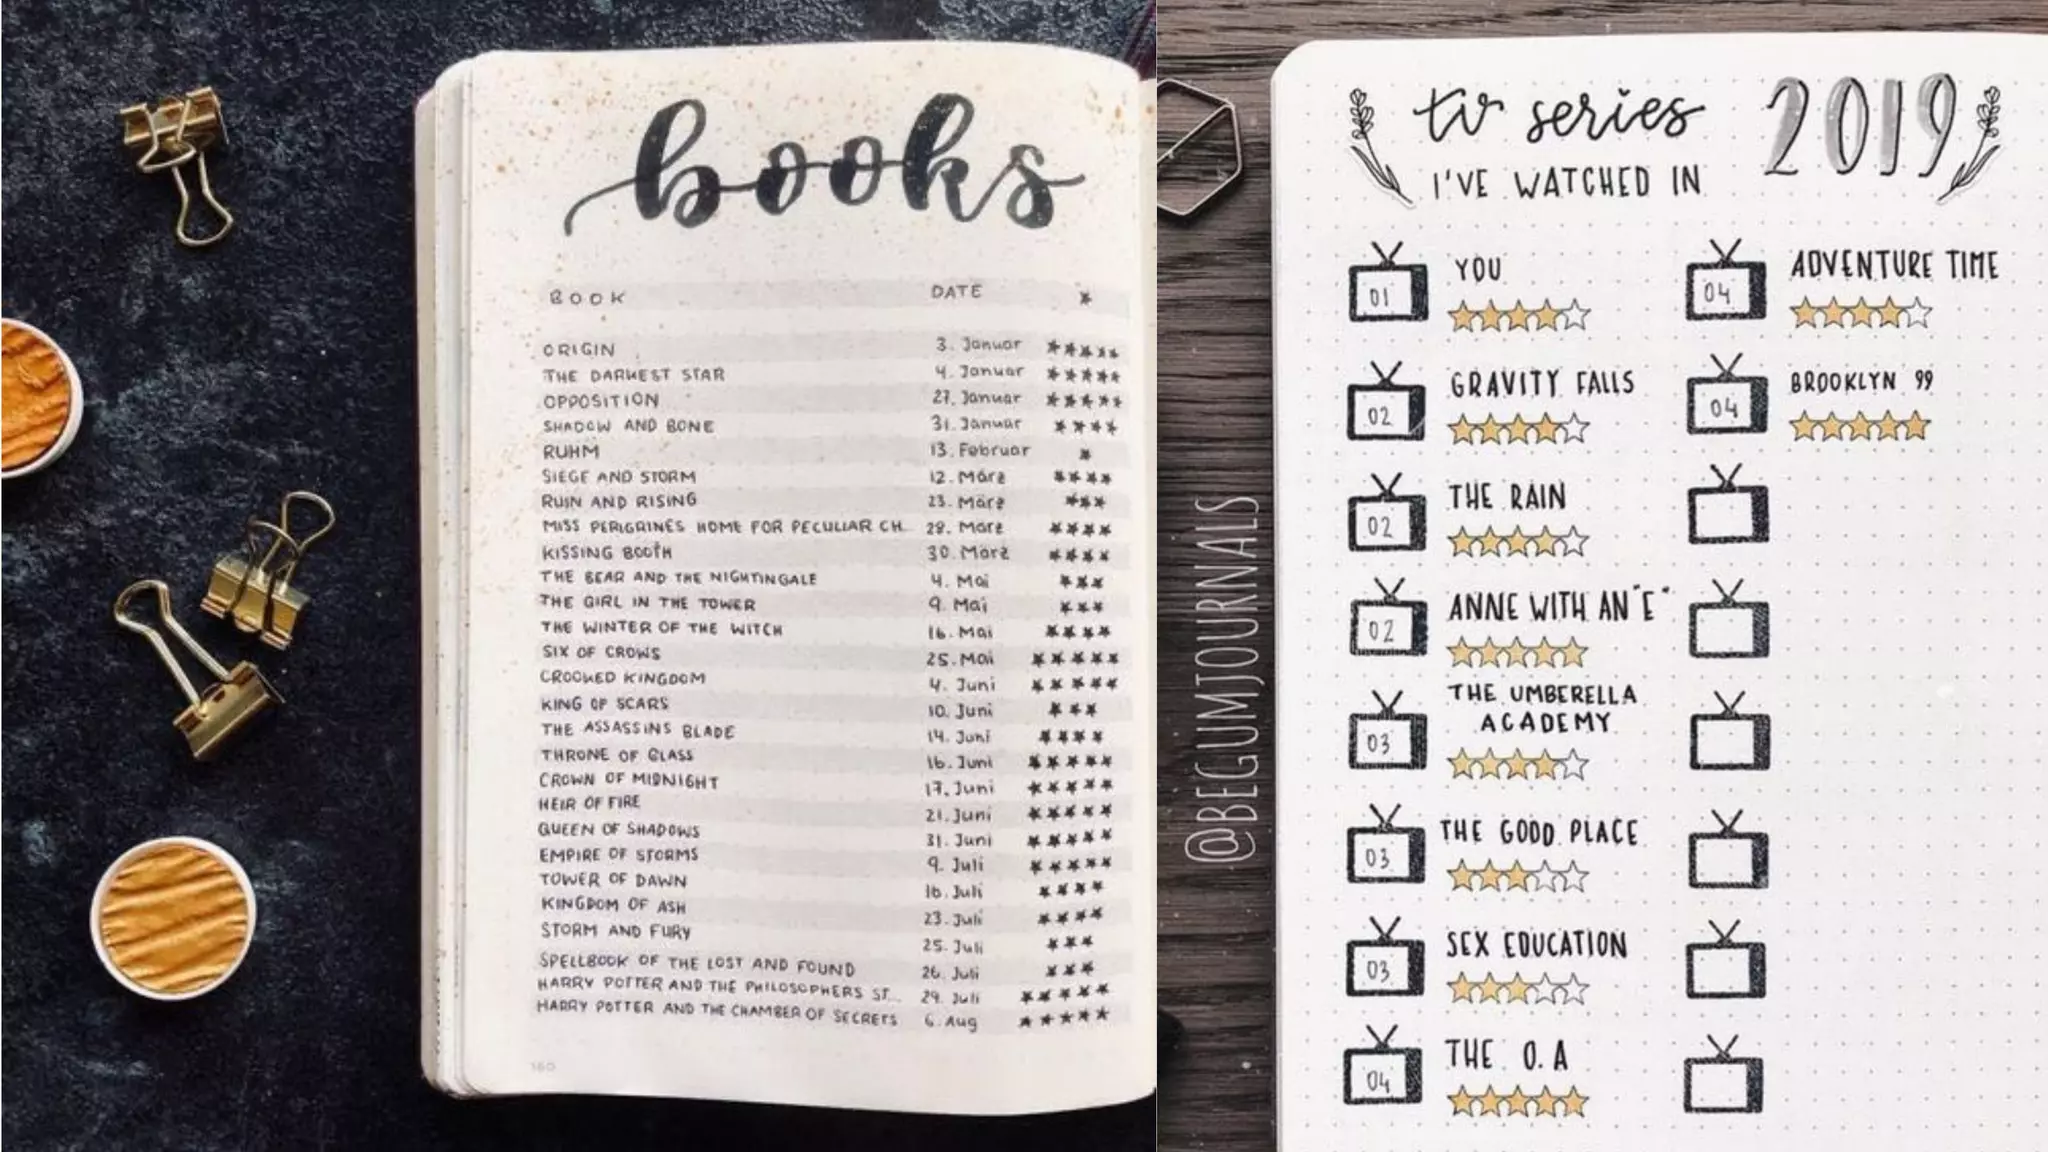 books
BOOK DATE
ORIGIN 3. Januar
THE DARKEST STAR 4. Januar
OPPOSITION 27. Januar
SHADOW AND BONE 31. Januar
RUHM 13. Februar
SIEGE AND STORM 12. März
RUIN AND RISING 23. März
MISS PERIGRINES HOME FOR PECULIAR CH... 28. März
KISSING BOOTH 30. März
THE BEAR AND THE NIGHTINGALE 4. Mai
THE GIRL IN THE TOWER 9. Mai
THE WINTER OF THE WITCH 16. Mai
SIX OF CROWS 25. Mai
CROOKED KINGDOM 4. Juni
KING OF SCARS 10. Juni
THE ASSASSINS BLADE 14. Juni
THRONE OF GLASS 16. Juni
CROWN OF MIDNIGHT 17. Juni
HEIR OF FIRE 21. Juni
QUEEN OF SHADOWS 31. Juni
EMPIRE OF STORMS 9. Juli
TOWER OF DAWN 16. Juli
KINGDOM OF ASH 23. Juli
STORM AND FURY 25. Juli
SPELLBOOK OF THE LOST AND FOUND 26. Juli
HARRY POTTER AND THE PHILOSOPHERS ST... 29. Juli
HARRY POTTER AND THE CHAMBER OF SECRETS 6. Aug
160
@BEGUMJOURNALS
tv series 2019
I'VE WATCHED IN
01 YOU
02 GRAVITY FALLS
02 THE RAIN
02 ANNE WITH AN "E"
03 THE UMBERELLA
ACADEMY
03 THE GOOD PLACE
03 SEX EDUCATION
04 THE O.A
04 ADVENTURE TIME
04 BROOKLYN 99